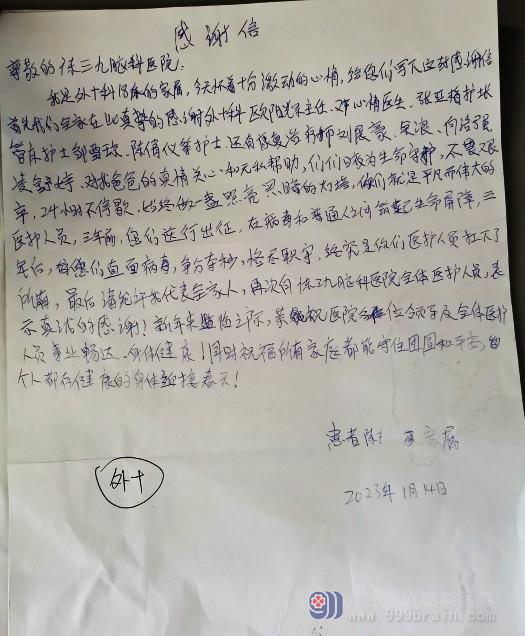 感谢信
尊敬的 三九脑科医院:
我是外十科18床的家属,今天怀着十分激动的心情,给您们写下这封感谢信
首先我们全家在此真挚的感谢外十科 主任、 医生、张亚梅护长
管床护士邹雪琼、陈倩仪等护士 还有康复治疗师刘展豪、
对我爸爸的真情关心和无私帮助,们们日夜为生命守护,不畏艰
辛,24小时不停歇,始终做一盏照亮黑暗的灯塔,你们就是平凡而伟大的
医护人员,三年前,您们逆行出征,在病毒和普通人之间筑起生命屏障,三
年后,你们直面病毒,争分夺秒,恪尽职守,终究是你们医护人员扛下了
所有,最后请允许我代表全家人,再次向 三九脑科医院全体医护人员,表
示真诚的感谢!新年来临之际, 祝医院各位领导及全体医护
人员事业畅达、身体健康!同时祝福所有家庭都能守住团圆和平安,每
个人都在健康的身体 接春天!
患者陈 家属
2023年1月14日
外十
广东三九脑科医院
www.999brain.com